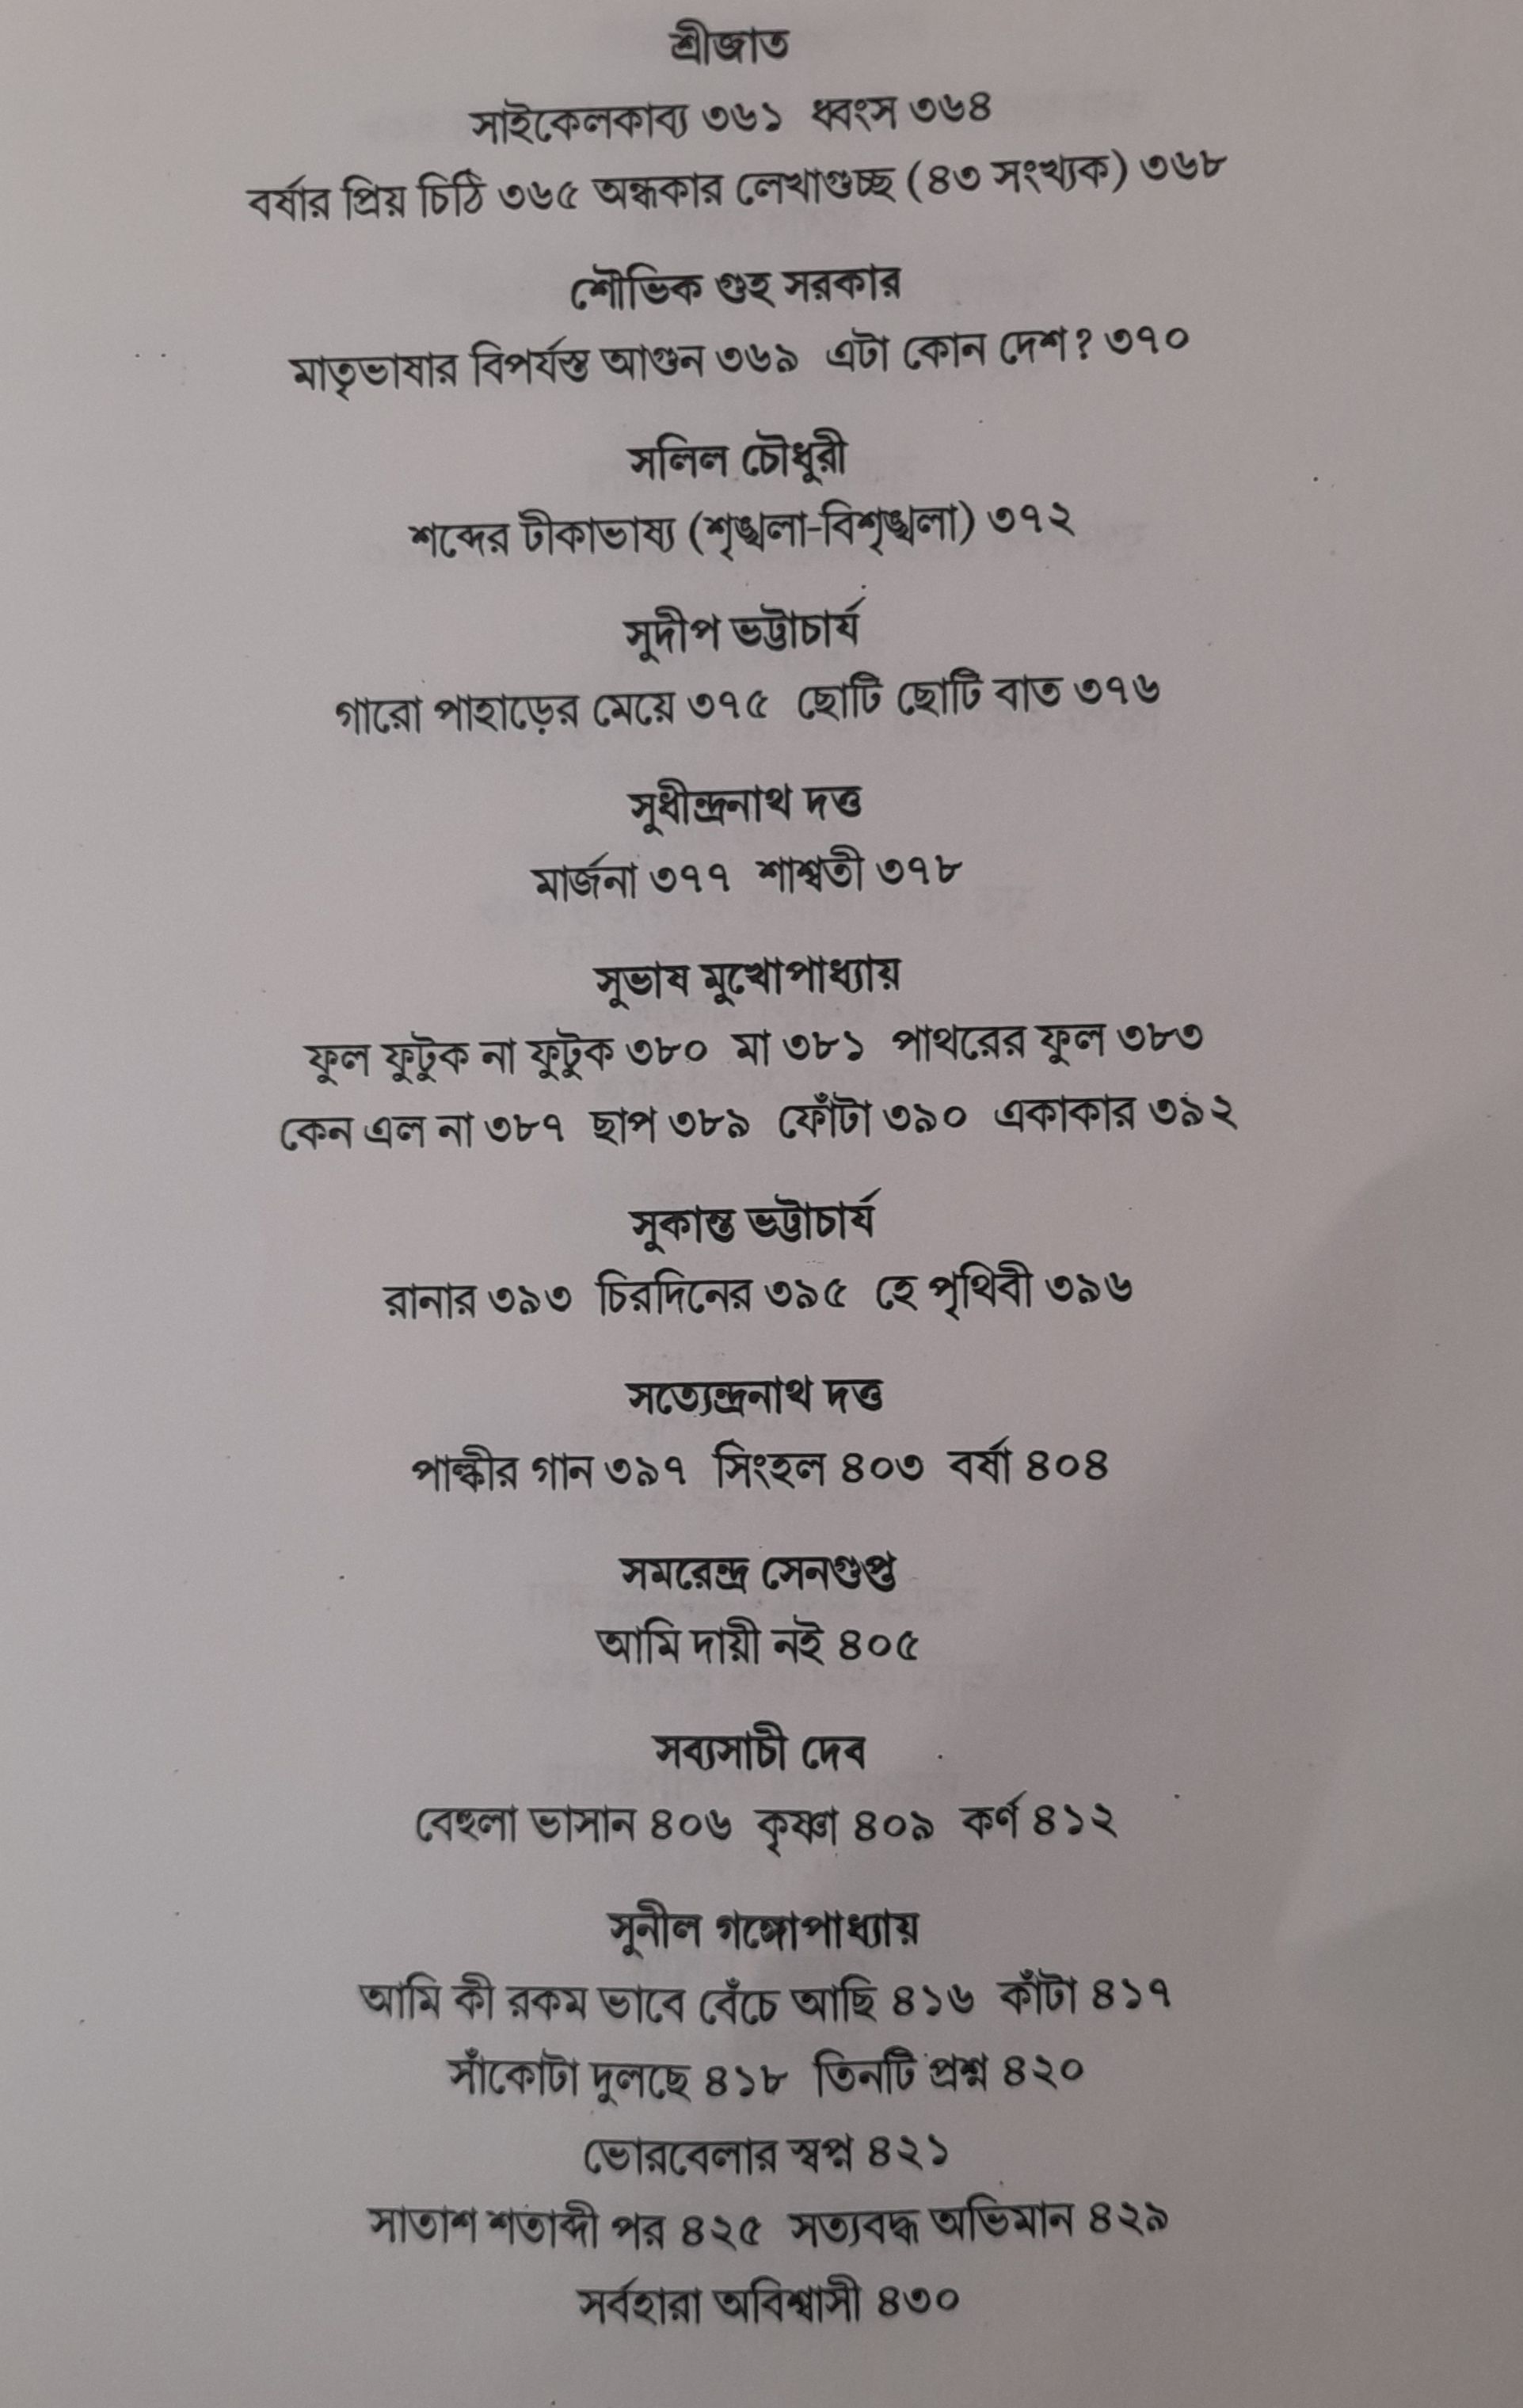 শ্রীজাত
সাইকেলকাব্য ৩৬১ ধ্বংস ৩৬৪
বর্ষার প্রিয় চিঠি ৩৬৫ অন্ধকার লেখাগুচ্ছ (৪৩ সংখ্যক) ৩৬৮
শৌভিক গুহ সরকার
মাতৃভাষার বিপর্যস্ত আগুন ৩৬৯ এটা কোন দেশ? ৩৭০
সলিল চৌধুরী
শব্দের টীকাভাষ্য (শৃঙ্খলা-বিশৃঙ্খলা) ৩৭২
সুদীপ ভট্টাচার্য
গারো পাহাড়ের মেয়ে ৩৭৫ ছোটি ছোটি বাত ৩৭৬
সুধীন্দ্রনাথ দত্ত
মার্জনা ৩৭৭ শাশ্বতী ৩৭৮
সুভাষ মুখোপাধ্যায়
ফুল ফুটুক না ফুটুক ৩৮০ মা ৩৮১ পাথরের ফুল ৩৮৩
কেন এল না ৩৮৭ ছাপ ৩৮৯ ফোঁটা ৩৯০ একাকার ৩৯২
সুকান্ত ভট্টাচার্য
রানার ৩৯৩ চিরদিনের ৩৯৫ হে পৃথিবী ৩৯৬
সত্যেন্দ্রনাথ দত্ত
পাল্কীর গান ৩৯৭ সিংহল ৪০৩ বর্ষা ৪০৪
সমরেন্দ্র সেনগুপ্ত
আমি দায়ী নই ৪০৫
সব্যসাচী দেব
বেহুলা ভাসান ৪০৬ কৃষ্ণা ৪০৯ কর্ণ ৪১২
সুনীল গঙ্গোপাধ্যায়
আমি কী রকম ভাবে বেঁচে আছি ৪১৬ কাঁটা ৪১৭
সাঁকোটা দুলছে ৪১৮ তিনটি প্রশ্ন ৪২০
ভোরবেলার স্বপ্ন ৪২১
সাতাশ শতাব্দী পর ৪২৫ সত্যবদ্ধ অভিমান ৪২৯
সর্বহারা অবিশ্বাসী ৪৩০